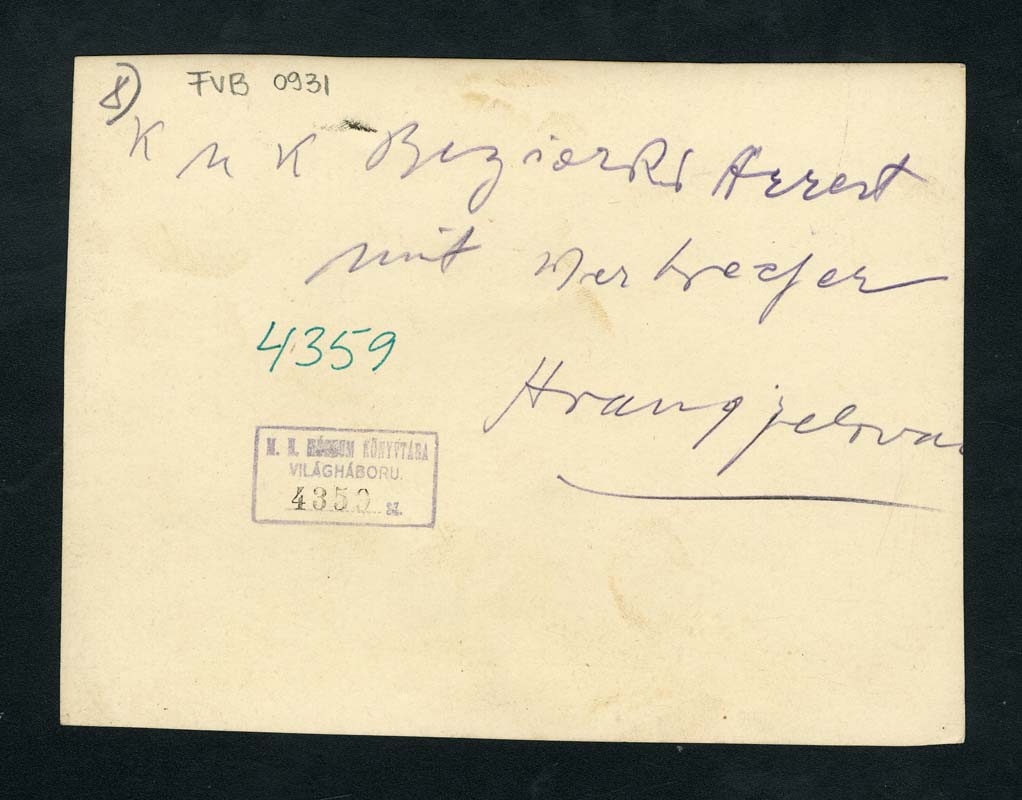 8) FVB 0931
K u K Bezierks Arrest
mit Verbrecher
4359
Arangjelovac
M. N. MÚZEUM KÖNYVTÁRA
VILÁGHÁBORU.
4359 sz.